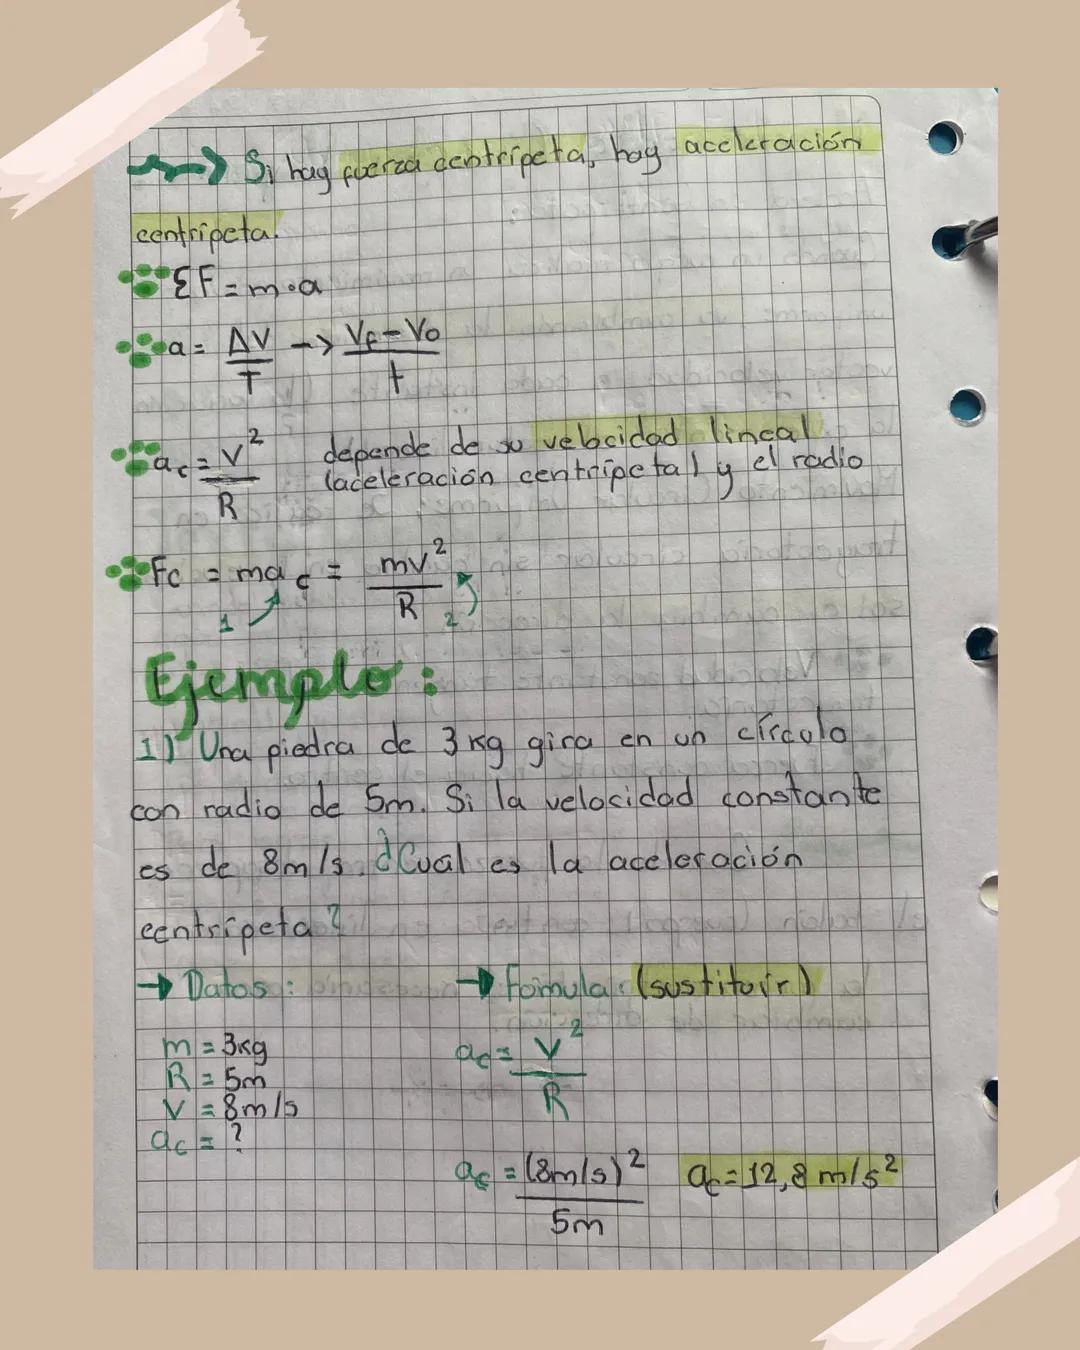 Si hay fuerza centrípeta, hay aceleración
centrípeta.
ΣF = m·a
a = ΔV/T -> Vf - Vo/t
ac = V²/R depende de su velocidad lineal
(aceleración centrípeta) y el radio
Fc = mac = mv²/R
1 2
Ejemplo:
1) Una piedra de 3kg gira en un círculo
con radio de 5m. Si la velocidad constante
es de 8m/s. ¿Cual es la aceleración
centrípeta?
→ Datos: → Fómula: (sustituir)
m = 3kg
R = 5m
V = 8m/s
ac = ?
ac = V²/R
ac = (8m/s)²/5m ac = 12,8 m/s²